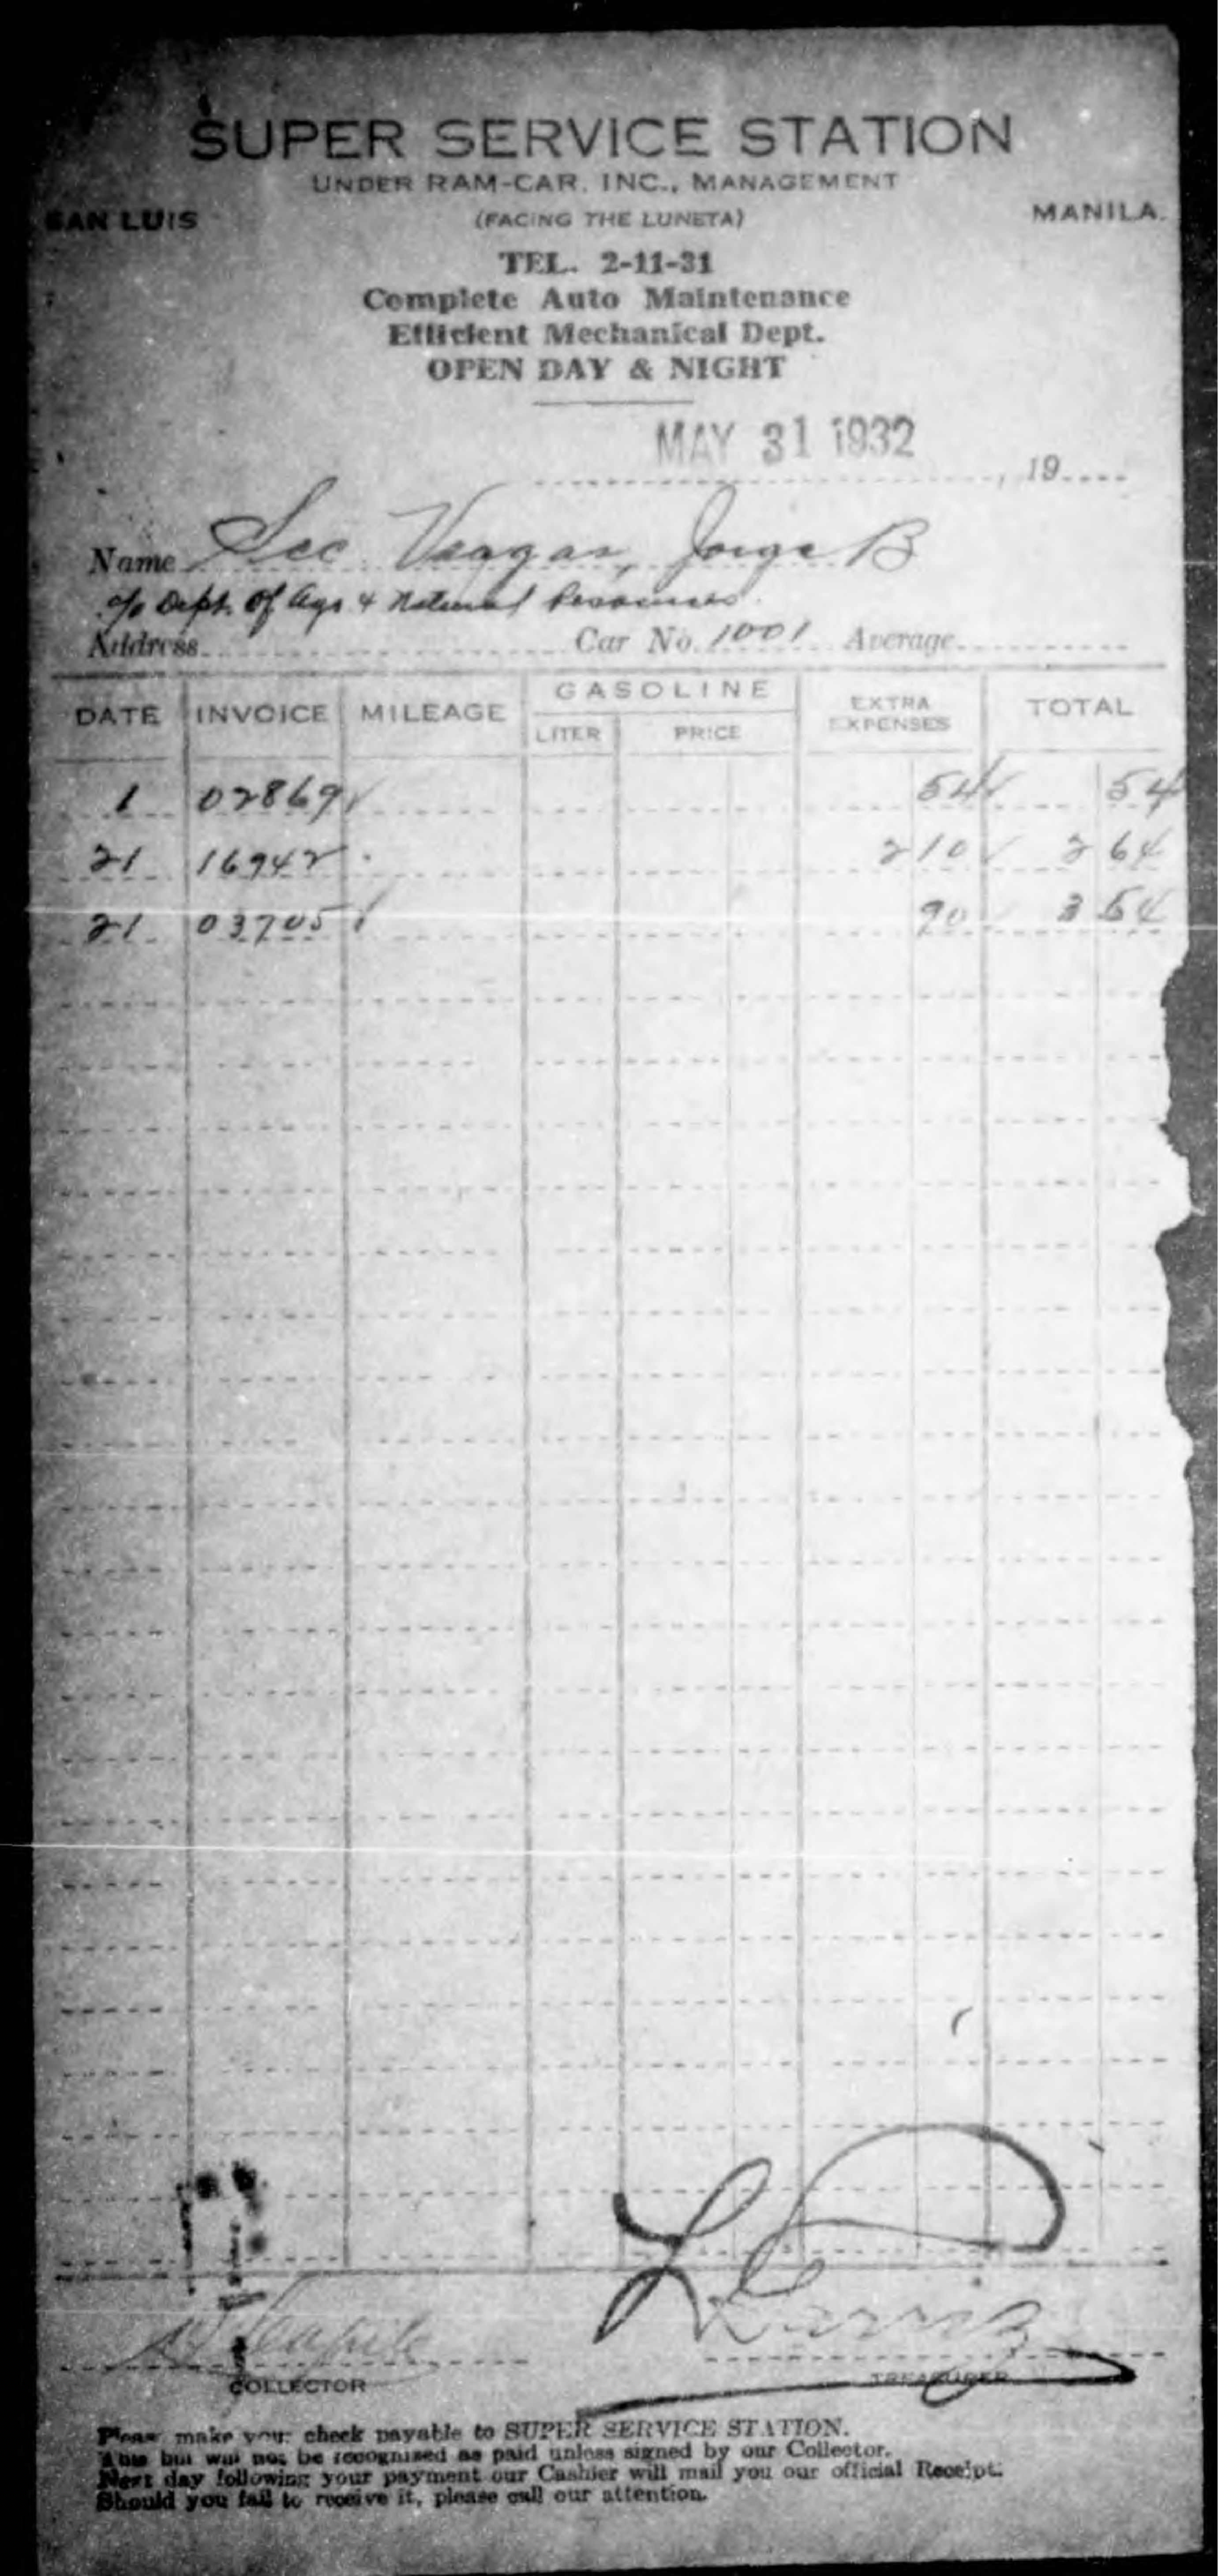 SUPER SERVICE STATION
UNDER RAM-CAR, INC., MANAGEMENT
SAN LUIS (FACING THE LUNETA) MANILA.
TEL. 2-11-31
Complete Auto Maintenance
Efficient Mechanical Dept.
OPEN DAY & NIGHT
MAY 31 1932 , 19
Name Sec Vargas, Jorge B
c/o Dept. of Agr & Natural Resources.
Address Car No. 1001 Average
GASOLINE
DATE INVOICE MILEAGE LITER PRICE EXTRA EXPENSES TOTAL
1 02869 ✓ 54 ✓ 54
21 16942 2 10 ✓ 2 64
21 03705 ✓ 90 3 54
COLLECTOR TREASURER
Please make your check payable to SUPER SERVICE STATION.
This bill will not be recognized as paid unless signed by our Collector.
Next day following your payment our Cashier will mail you our official Receipt.
Should you fail to receive it, please call our attention.